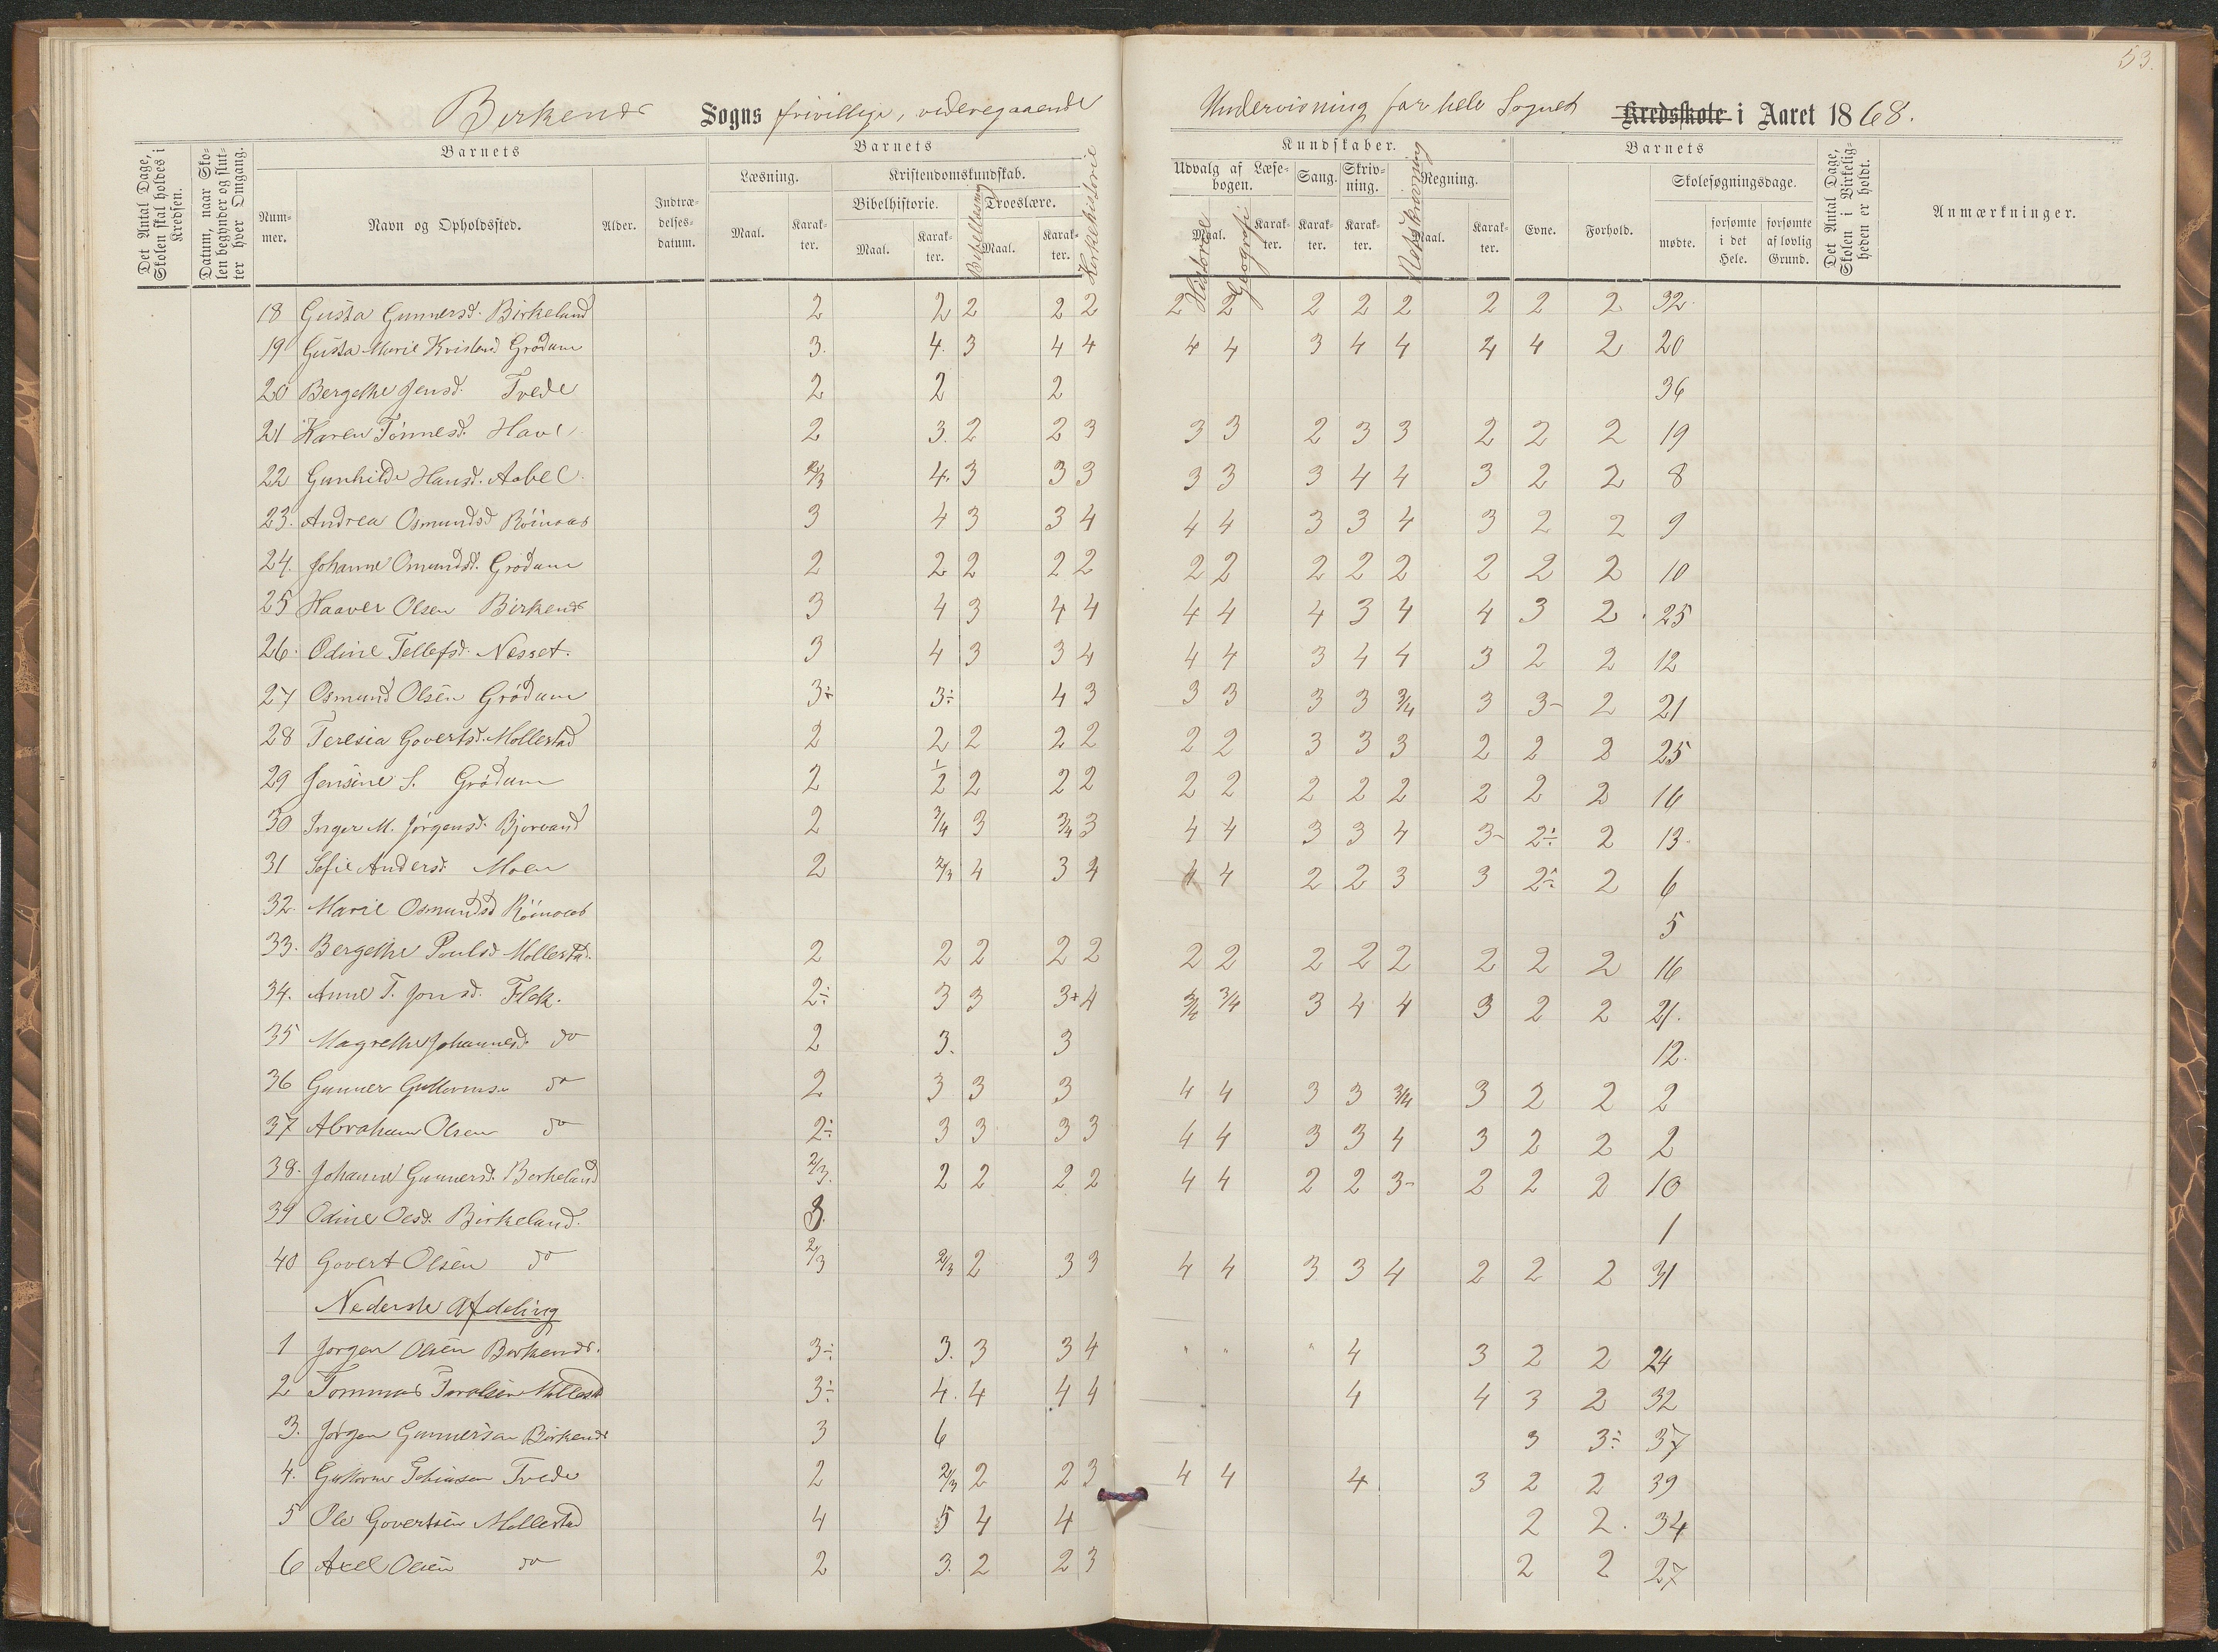 53.
Birkenes Sogns frivillige, videregaaende Undervisning for hele Sognet Kredsskole i Aaret 1868.
Det Antal Dage, Skolen skal holdes i Kredsen.
Datum, naar Skolen begynder og slutter hver Omgang.
Barnets
Nummer. Navn og Opholdssted. Alder. Indtrædelsesdatum.
Barnets
Læsning. Kristendomskundskab.
Maal. Karakter. Bibelhistorie. Maal. Karakter. Bibellæsning Troeslære. Maal. Karakter. Kirkehistorie
Kundskaber.
Udvalg af Læsebogen. Sang. Skrivning. Regning.
Maal. Historie Geografi Karakter. Karakter. Karakter. Retskrivning Maal. Karakter.
Barnets
Evne. Forhold. Skolesøgningsdage.
mødte. forsømte i det Hele. forsømte af lovlig Grund.
Det Antal Dage, Skolen i Virkeligheden er holdt.
Anmærkninger.
18 Gusta Gunnersd. Birkeland 2 2 2 2 2 2 2 2 2 2 2 2 2 32
19 Gusta Marie Grødum 3. 4. 3 4 4 4 4 3 4 4 4 4 2 20
20 Bergethe Jensd. Tvede 2 2 2 36
21 Karen Tönnesd. Have 2 3. 2 2 3 3 3 2 3 3 2 2 2 19
22 Gunhilde Hansd. Aabel 2/3 4. 3 3 3 3 3 3 4 4 3 2 2 8
23. Andrea Osmundsd 3 4 3 3 4 4 4 3 3 4 3 2 2 9
24. Johanne Omundsd. Grødum 2 2 2 2 2 2 2 2 2 2 2 2 2 10
25 Haaver Olsen Birkenes 3 4 3 4 4 4 4 4 3 4 4 3 2 25
26. Odine Tellefsd. Nesset. 3 4 3 3 4 4 4 3 4 4 3 2 2 12
27 Osmund Olsen Grødum 3÷ 3÷ 4 3 3 3 3 3 3/4 3 3- 2 21
28 Teresia Govertsd. Mollestad 2 2 2 2 2 2 2 3 3 3 2 2 2 25
29 Jensine S. Grødum 2 1/2 2 2 2 2 2 2 2 2 2 2 2 16
30 Inger M. Jørgensd. Bjorvand 2 3/4 3 3/4 3 4 4 3 3 4 3- 2÷ 2 13.
31 Sofie Andersd Moen 2 2/3 4 3 4 4 4 2 2 3 3 2÷ 2 6
32. Marie Osmundsd 5
33. Bergethe Poulsd Mollestad. 2 2 2 2 2 2 2 2 2 2 2 2 2 16
34. Anne T. Jonsd. Flak. 2÷ 3 3 3+ 4 3/4 3/4 3 4 4 3 2 2 21.
35 Magrethe Johannesd. do 2 3. 3 12.
36 Gunner Guttormsen do 2 3 3 3 4 4 3 3 3/4 3 2 2 2
37 Abraham Olsen do 2÷ 3 3 3 3 4 4 3 3 4 3 2 2 2
38. Johanne Gunnersd. Berkeland 2/3. 2 2 2 2 4 4 2 2 3- 2 2 2 10
39 Odine Olsd. Birkeland. 3. 1
40 Govert Olsen do 2/3 2/3 2 3 3 4 4 3 3 4 2 2 2 31
Nederste Afdeling
1 Jørgen Olsen Birkenes. 3÷ 3. 3 3 4 " " " 4 3 2 2 24
2 Tommas Mollestad 3÷ 4. 4 4 4 4 4 3 2 32
3. Jørgen Gunnersen Birkenes 3 6 3 3÷ 37
4. Guttorm Tvede 2 2/3 2 2 3 4 4 4. 3 2 2 39
5 Ole Govertsen Mollestad 4 5 4 4 2 2. 34
6 Axel Olsen do 2 3. 2 2 3 2 2 27